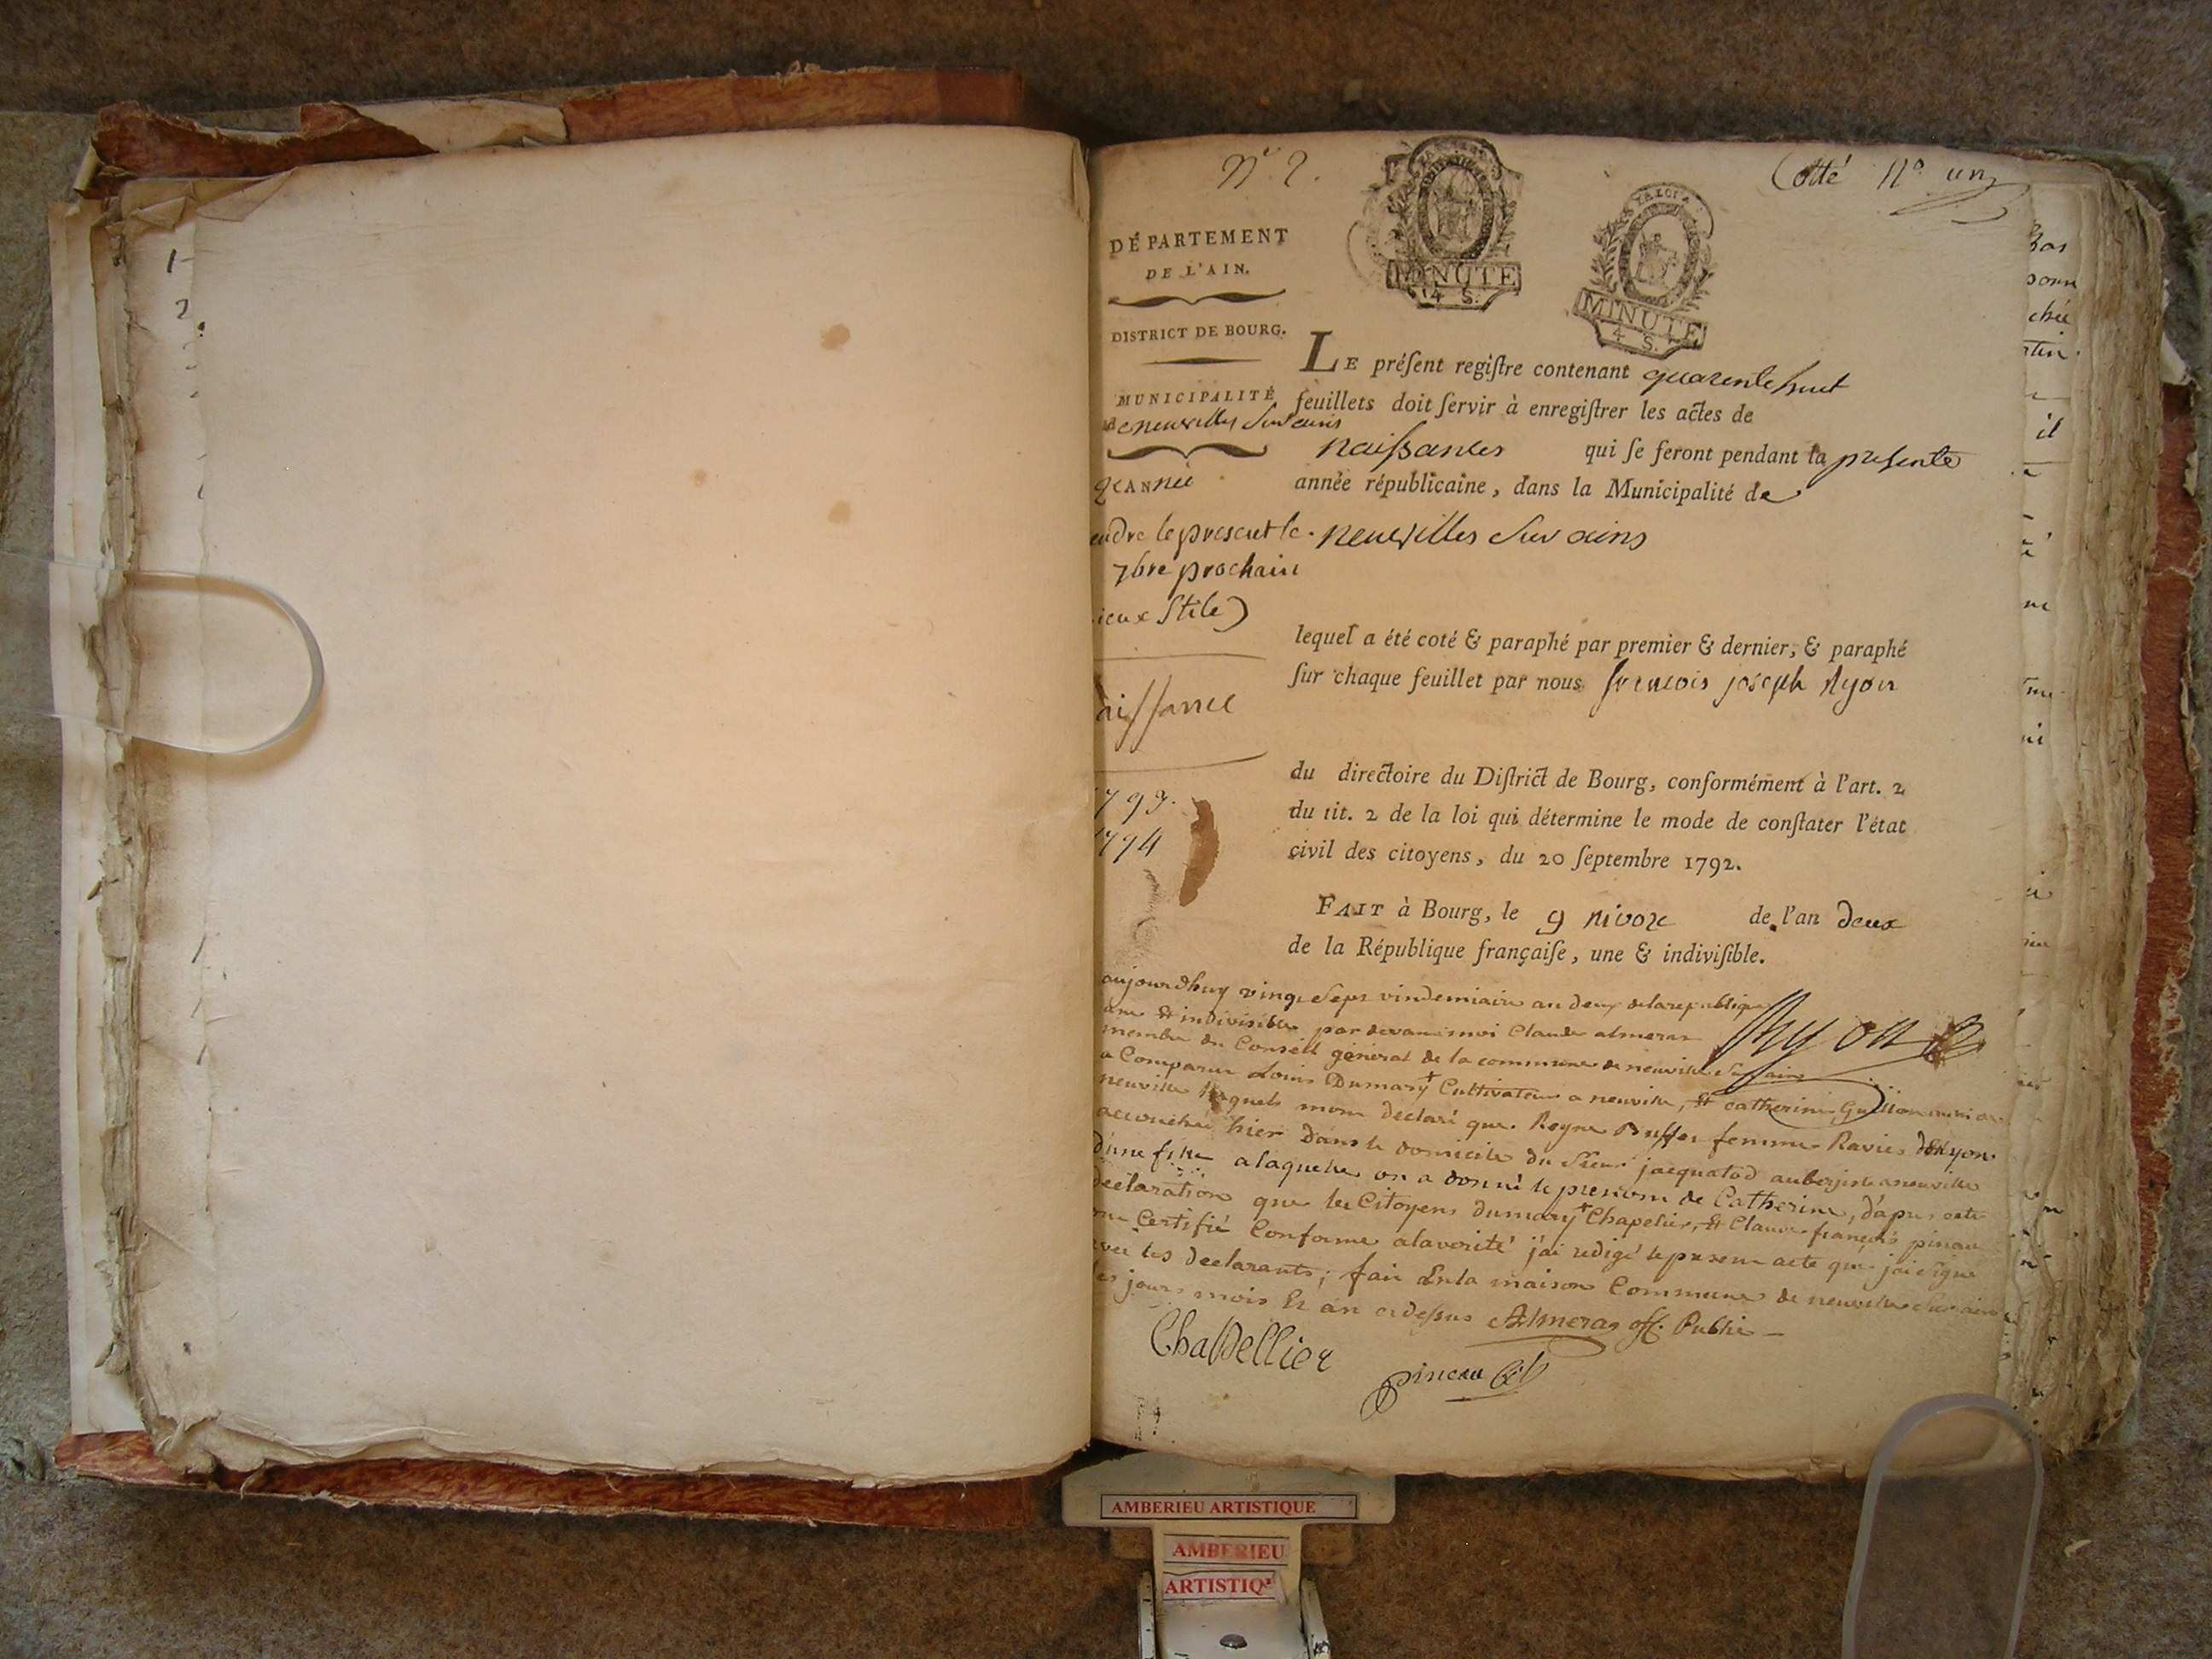 1
2
N° 2.
Cotté N° un
MINUTE
4 S.
LA LOI
MINUTE
4 S.
DÉPARTEMENT
DE L'AIN.
DISTRICT DE BOURG.
MUNICIPALITÉ
neuville Sur ains
2e ANnée
endre le present le
7bre prochain
ieux Stile)
aissance
1793.
1794
LE préſent regiſtre contenant quarente huit
feuillets doit ſervir à enregiſtrer les actes de
naissances qui ſe feront pendant la presente
année républicaine, dans la Municipalité de
neuvilles Sur ains
lequel a été coté & paraphé par premier & dernier, & paraphé
ſur chaque feuillet par nous francois joseph Ryon
du directoire du Diſtrict de Bourg, conformément à l'art. 2
du tit. 2 de la loi qui détermine le mode de conſtater l'état
civil des citoyens, du 20 ſeptembre 1792.
FAIT à Bourg, le 9 nivoze de l'an deux
de la République françaiſe, une & indiviſible.
Ryon
aujourdhuy vingt Sept vindemiaire an deux de la republique
une et indivisible par devant moi Claude almeras
membre du Conseil général de la commune de neuville Sur ains
a Comparu Louis Dumary + Cultivateur a neuville, et catherine
neuville lesquels mont declaré que Reyne Buffet femme Ravier de Lyon
accouchée hier dans le domicile du Sieur jacquatod aubergiste a neuville
d'une fille a laquelle on a donné le prenom de Catherine, d'apres cette
declaration que les Citoyens dumary + Chapelier, et Claude françois pineau
ont Certifié Conforme a la verité j'ai redigé le present acte que j'ai signé
avec les declarants; fait En la maison Commune de neuville Sur ains
les jours mois Et an cidessus Almeras off. Public
Chapellier
pineau fils
AMBERIEU ARTISTIQUE
AMBERIEU
ARTISTIQ